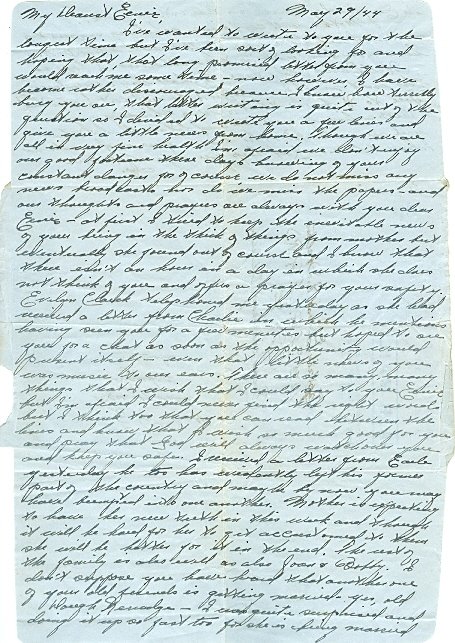 My Dearest Ernie, May 29/44
I've wanted to write to you for the
longest time but I've been sort of looking for and
hoping that that long promised letter from you
would reach me some time - now however I have
become rather discouraged because I know how terribly
busy you are that letter writing is quite out of the
question so I decided to write you a few lines and
give you a little news from home. Though we are
all in very fine health I'm afraid we don't enjoy
our good fortune these days knowing of your
constant danger for of course we do not miss any
news broadcasts nor do we miss the papers and
our thoughts and prayers are always with you dear
Ernie - at first I tried to keep the inevitable news
of your being in the thick of things from mother but
eventually she found out of course and I know that
there isn't an hour in a day in which she does
not think of you and offer a prayer for your safety.
Evelyn Clark telephoned me yesterday as she had
received a letter from Charlie in which he mentions
having seen you for a few minutes but hoped to see
you for a chat as soon as the opportunity would
present itself - even that little news of you
was music to our ears. There are so many
things that I wish that I could say to you Ernie
but I'm afraid I could not find the right words
but I think you that you can read between the
lines and know that I wish so much good for you
and pray that God will always watch over you
and keep you safe. I received a letter from Earle
yesterday he too has evidently left his former
part of the country and maybe by now you may
have bumped into one another. Mother is expecting
to have her new teeth in this week and though
it will be hard for her to get accustomed to them
she will be better for it in the end. The rest of
the family is also well as also Joan & Dotty. I
don't suppose you have heard that another one
of your old friends is getting married - yes, old
- I was quite surprised and
doing it up so fast too for she is being married